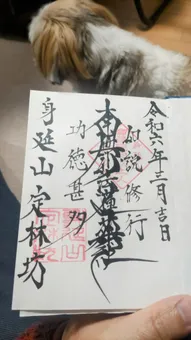 令和六年三月吉日
如説修行
南無妙法蓮華経
功徳甚多
身延山 定林坊